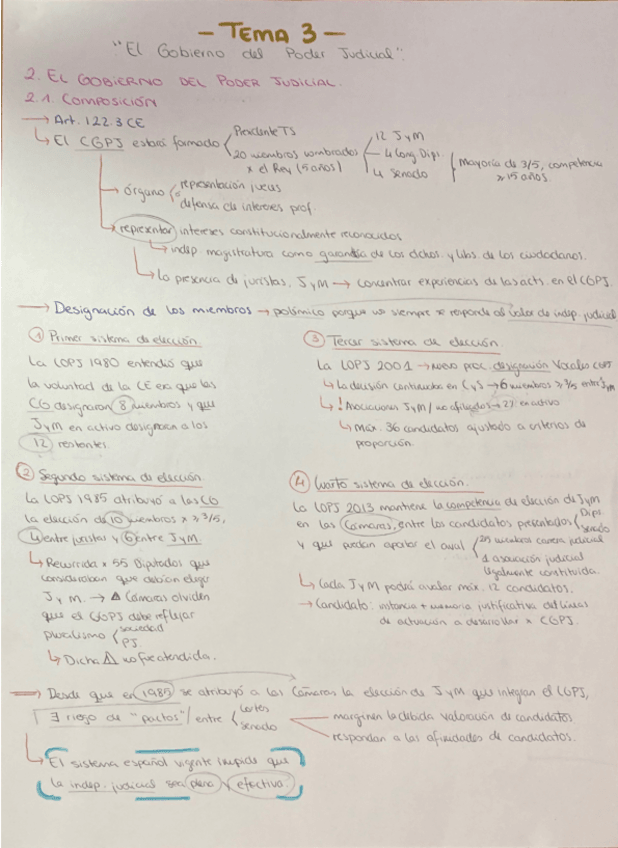 - TEMA 3 -
"El Gobierno del Poder Judicial".
2. EL GOBIERNO DEL PODER JUDICIAL.
2.1. COMPOSICIÓN
→ Art. 122.3 CE
↳ El CGPJ estará formado
Presidente TS
20 miembros nombrados
x el Rey (5 años)
12 JyM
4 Cong. Dip.
4 Senado
Mayoría de 3/5, competencia
≥ 15 años.
→ órgano
representación jueces
defensa de intereses prof.
→ representar intereses constitucionalmente reconocidos
↳ indep. magistratura como garantía de los dchos. y libs. de los ciudadanos.
↳ La presencia de juristas, JyM → concentrar experiencias de las acts. en el CGPJ.
→ Designación de los miembros → polémico porque no siempre se responde al valor de indep. judicial
① Primer sistema de elección.
La LOPJ 1980 entendió que
la voluntad de la CE era que las
CG designaran 8 miembros y que
JyM en activo designaran a los
12 restantes.
② Segundo sistema de elección.
La LOPJ 1985 atribuyó a las CG
la elección de 10 miembros x ≥ 3/5,
4 entre juristas y 6 entre JyM.
↳ Recurrida x 55 Diputados que
consideraban que debían elegir
JyM. → ⚠ Cámaras olviden
que el CGPJ debe reflejar
pluralismo
sociedad
PJ.
↳ Dicha ⚠ no fue atendida.
③ Tercer sistema de elección.
La LOPJ 2001 → nuevo proc. designación Vocales
↳ La decisión continuaba en CyS → 6 miembros x 3/5 entre JyM
↳ ! Asociaciones JyM / no afiliados → 2% en activo
↳ máx. 36 candidatos ajustado a criterios de
proporción.
④ Cuarto sistema de elección.
La LOPJ 2013 mantiene la competencia de elección de JyM
en las Cámaras, entre los candidatos presentados
Dip.
Senado
y que puedan aportar el aval
25 miembros carrera judicial
1 asociación judicial
legalmente constituida.
↳ Cada JyM podrá avalar máx. 12 candidatos.
→ Candidato: instancia + memoria justificativa del líneas
de actuación a desarrollar x CGPJ.
→ Desde que en 1985 se atribuyó a las Cámaras la elección de JyM que integran el CGPJ,
∃ riesgo de "pactos" / entre
Cortes
Senado
marginen la debida valoración de candidatos
respondan a las afinidades de candidatos.
↳ El sistema español vigente impide que
la indep. judicial sea plena y efectiva.